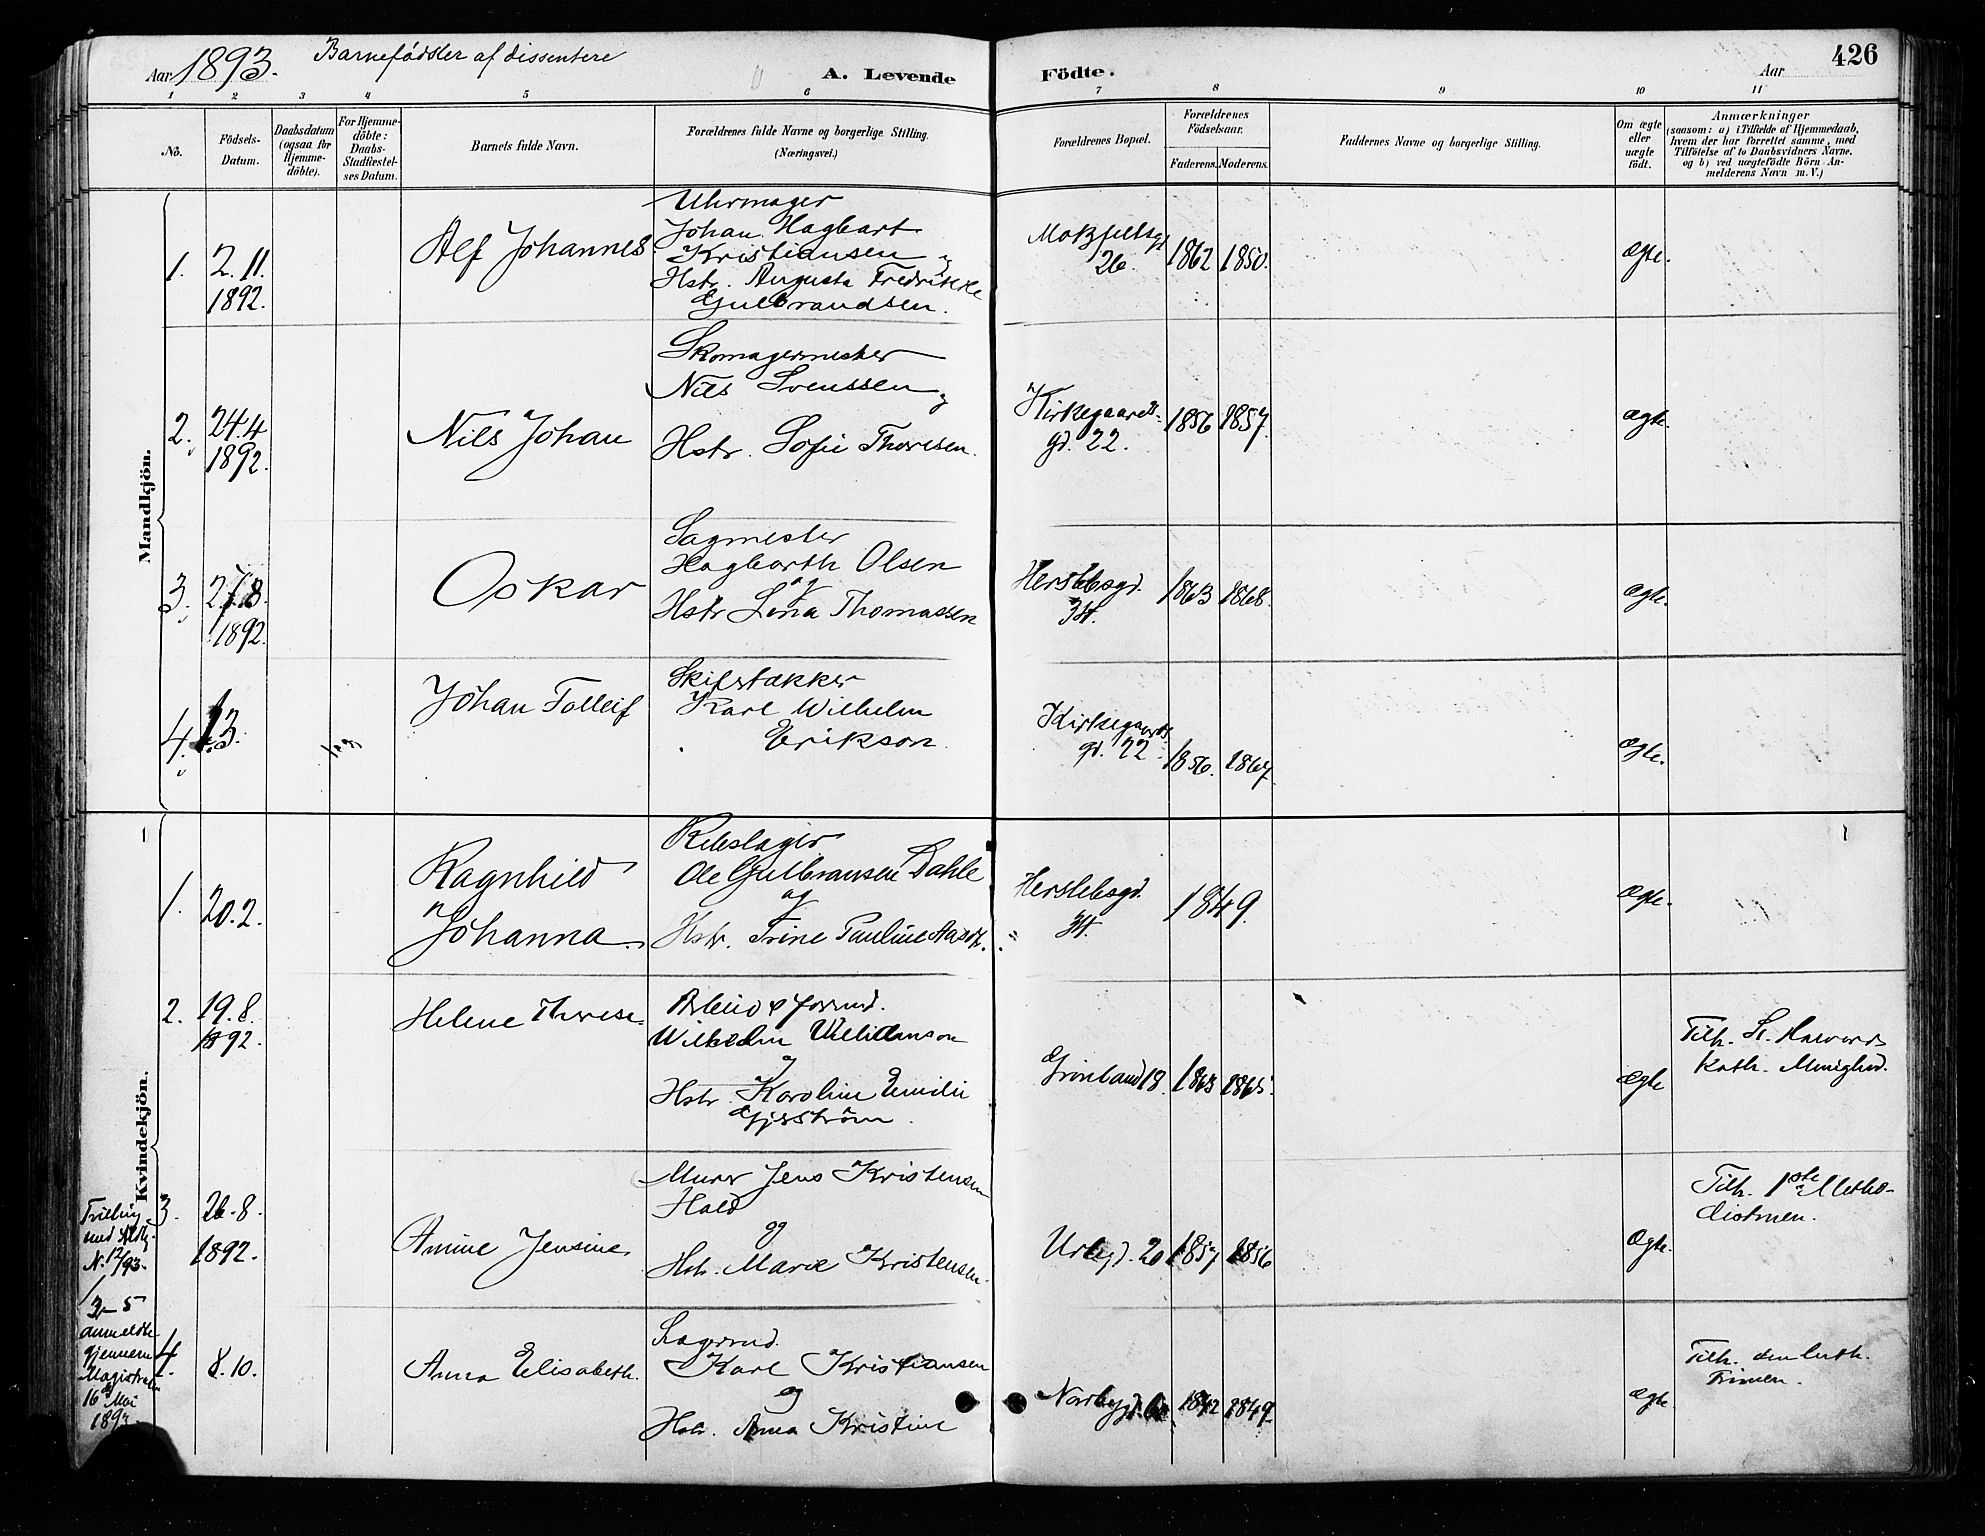 Aar 1893. Barnefødsler af dissentere A. Levende Födte. Aar 426
1 2 3 4 5 6 7 8 9 10 11
No.
Födsels-
Datum.
Daabsdatum
(ogsaa for
Hjemme-
döbte).
For Hjemme-
döbte:
Daabs-
Stadfæstel-
ses Datum.
Barnets fulde Navn.
Forældrenes fulde Navne og borgerlige Stilling.
(Næringsvei.)
Forældrenes Bopæl.
Forældrenes
Födselsaar.
Faderens. Moderens.
Faddernes Navne og borgerlige Stilling.
Om ægte
eller
uægte
födt.
Anmærkninger
(saasom: a) i Tilfælde af Hjemmedaab,
hvem der har forrettet samme, med
Tilföielse af to Daabsvidners Navne,
og b) ved uægtefödte Börn An-
melderens Navn m. V.)
Mandkjön.
1.
2.11.
1892.
Alf Johannes
Uhrmager
Johan Hagbart
Kristiansen
Hstr. Augusta Fredrikke
Gulbrandsen.
26.
1862 1850.
Ægte.
2.
24.4
1892.
Nils Johan
Skomagermester
Nils Svenssen
Hstr. Sofie Thoresen.
Kirkegaards-
gd. 22.
1856 1857.
Ægte.
3.
27.8.
1892.
Oskar
Sagmester
Hagbarth Olsen
og
Hstr Lina Thomassen
Herslebsgd.
34.
1863 1868.
Ægte.
4.
Johan Tolleif
Skifertækker
Karl Wilhelm
Erikson.
Kirkegaards
gd. 22
1856. 1867.
Ægte.
Kvindekjön.
1.
20.2.
Ragnhild
Johanna.
Rebslager
Ole Gulbransen Dahle
og
Hstr. Trine Pauline
Herslebsgd.
34.
1849.
Ægte.
2.
19.8.
92.
Helene Therese
Wilhelm
og
Hstr. Karoline Emilie
Grønland 18.
1863 1865.
Ægte
Tilh. St.
Kath. Menighed.
3.
26.8.
1892.
Amine Jensine
Murer Jens Kristensen
Hald
og
Hstr. Marie Kristensen.
Urbygd. 20
1857 1856
Ægte.
Tilh. 1ste Metho-
distmen.
Trilling
med
N. 12/93.
3-5
anmeldte
gjennem
Magistraten
16 Mai
1893
4.
8.10.
Anna Elisabeth.
Lagermd.
Karl Kristiansen
og
Hstr. Anna Kristine
Norbygd.
1842 1849.
Ægte
Tilh. den luth.
Frimen.